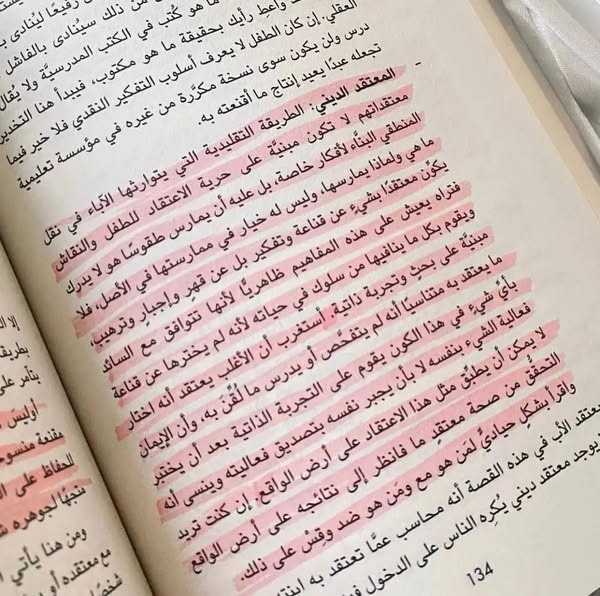 رفيعًا ليُنادى
ما هو كُتب في الكتب المدرسيَّة ولا يُقال
العقلي. إن كان الطفل لا يعرف أسلوب التفكير النقدي فلا خير فيما
واعطِ رأيك بحقيقة ما هو مكتوب، فيبدأ هنا التخدير
درس ولن يكون سوى نسخة مكرَّرة من غيره في مؤسسة تعليمية
تجعله عبدًا يعيد إنتاج ما أقنعته به.
- المعتقد الديني: الطريقة التقليدية التي يتوارثها الآباء في نقل
معتقداتهم لا تكون مبنيَّة على حرية الاعتقاد للطفل والنقاش
المنطقي البنَّاء لأفكار خاصة، بل عليه أن يمارس طقوسًا هو لا يدرك
ما هي ولماذا يمارسها، وليس له خيار في ممارستها في الأصل، فلا
يكون معتقدًا بشيءٍ عن قناعة وتفكير بل عن قهرٍ وإجبارٍ وترهيب،
فتراه يعيش على هذه المفاهيم ظاهريًّا لأنها تتوافق مع السائد
ويقوم بكل ما ينافيها من سلوك في حياته لأنه لم يخترها عن قناعة
مبنيَّة على بحث وتجربة ذاتية. أستغرب أن الأغلب يعتقد أنه اختار
ما يعتقد به متناسيًا أنه لم يتفحَّص أو يدرس ما لُقِّن به، وأن الإيمان
بأيِّ شيءٍ في هذا الكون يقوم على التجربة الذاتية بعد أن يختبر
فعالية الشيء بنفسه لا بأن يجبر نفسه بتصديق فعاليته وينسى أنه
لا يمكن أن يطبِّق مثل هذا الاعتقاد على أرض الواقع. إن كنت تريد
التحقُّق من صحة معتقدٍ ما فانظر إلى نتائجه على أرض الواقع
واقرأ بشكلٍ حياديٍّ لمَن هو مع ومَن هو ضد وقِسْ على ذلك.
معتقد الأب في هذه القصة أنه محاسب عمَّا تعتقد به ابنته
يوجد معتقد ديني يُكرِه الناس على الدخول
134
إلا
بطريقة
يتأمر على
أوليس
مقنعة
الحفاظ على
لجوهره
ومن هنا يأتي
مع معتقده أو
شخصًا